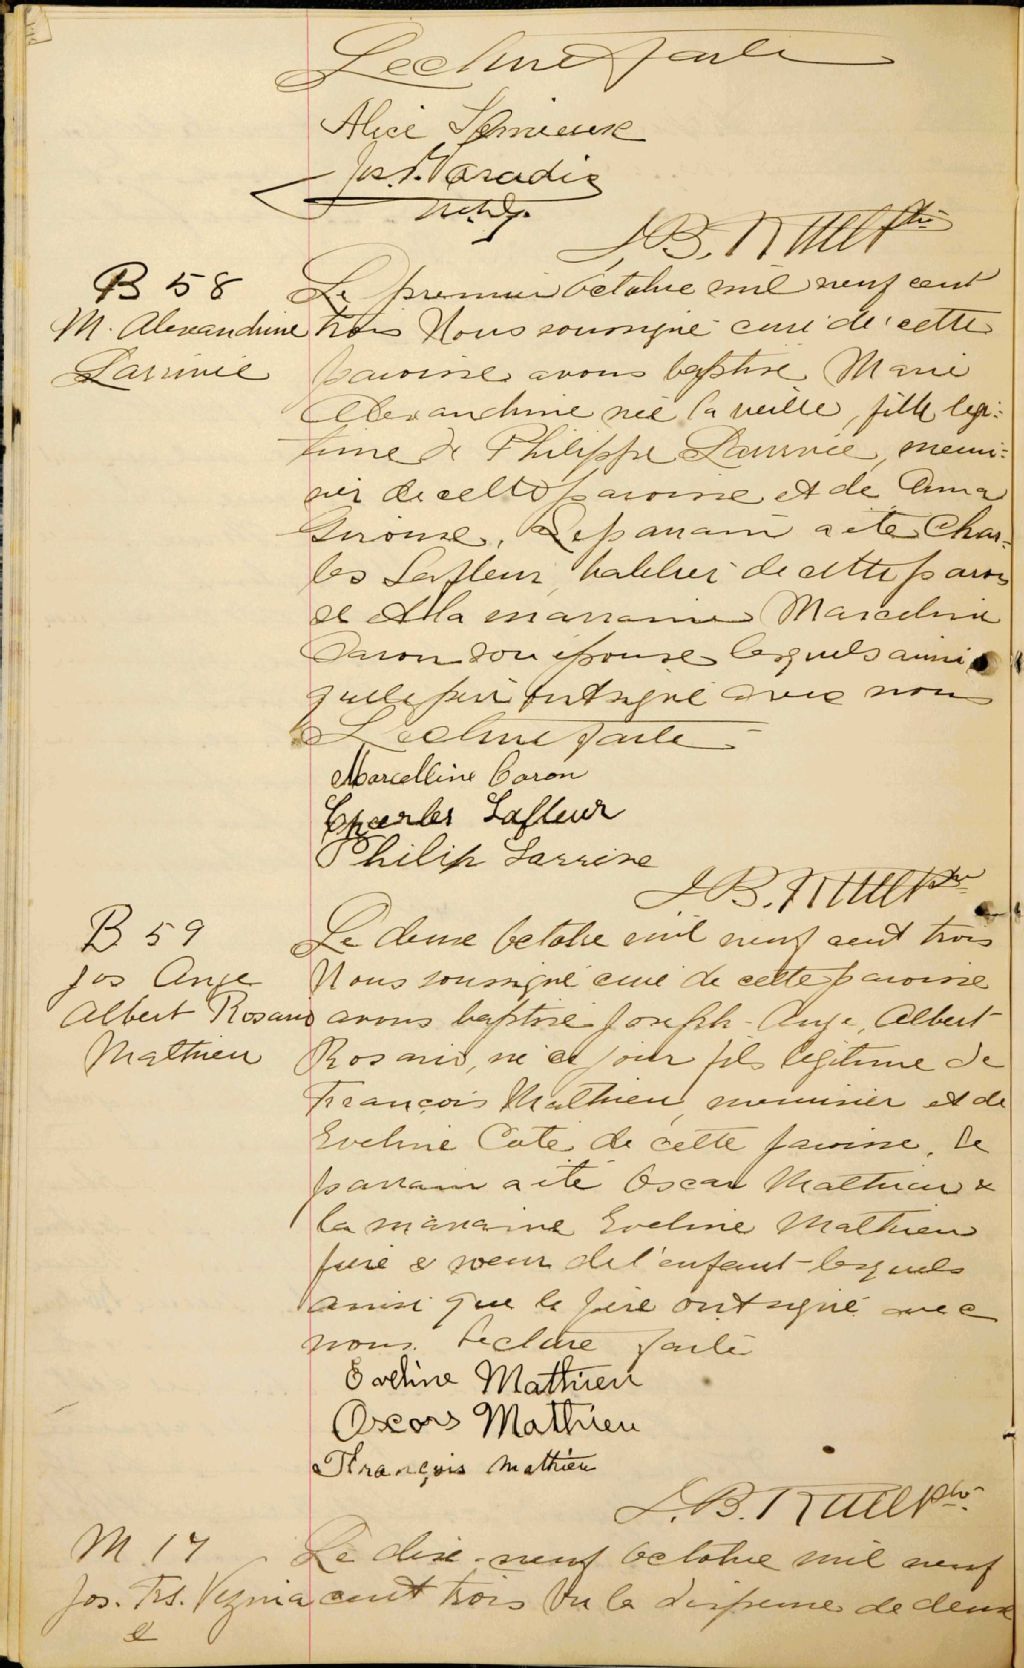 Lecture faite
Alice Lemieux
Jos. P. Paradis
J. B. Ruel Ptre
B 58
M. Alexandrine
Larrivie
Le premier Octobre mil neuf cent
trois Nous soussigné curé de cette
paroisse avons baptisé Marie
Alexandrine née la veille, fille legi-
time de Philippe Larrivie, menui-
sier de cette paroisse et de Anna
Girouse. Le parrain a été Char-
les Lafleur, de cette parois
se et la marraine Marceline
Caron son épouse lesquels ainsi
que le père ont signé avec nous
Lecture faite
Marcelline Caron
Charles Lafleur
Philip Larrive
J. B. Ruel Ptre
B 59
Jos Ange
Albert Rosario
Mathieu
Le deuxe Octobre mil neuf cent trois
Nous soussigné curé de cette paroisse
avons baptisé Joseph-Ange, Albert
Rosario, né ce jour fils légitime de
François Mathieu, menuisier et de
Eveline Coté de cette paroisse. Le
parrain a été Oscar Mathieu &
la marraine Eveline Mathieu
frère & soeur de l'enfant lesquels
ainsi que le père ont signé avec
nous. Lecture faite
Eveline Mathieu
Oscars Mathieu
François Mathieu
J. B. Ruel Ptre
M. 17
Jos. Frs. Vezina
&
Le dix-neuf Octobre mil neuf
cent trois Vu la dispense de deux